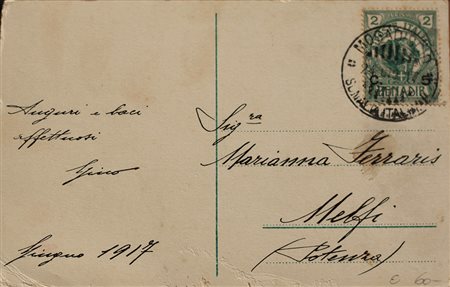 2 2
BENADIR
MOGADISCIO
SOMALIA ITALIANA
Auguri e baci
affettuosi
Gino
Giugno 1917
Sig.ra
Marianna Ferraris
Melfi
(Potenza)
€ 60-